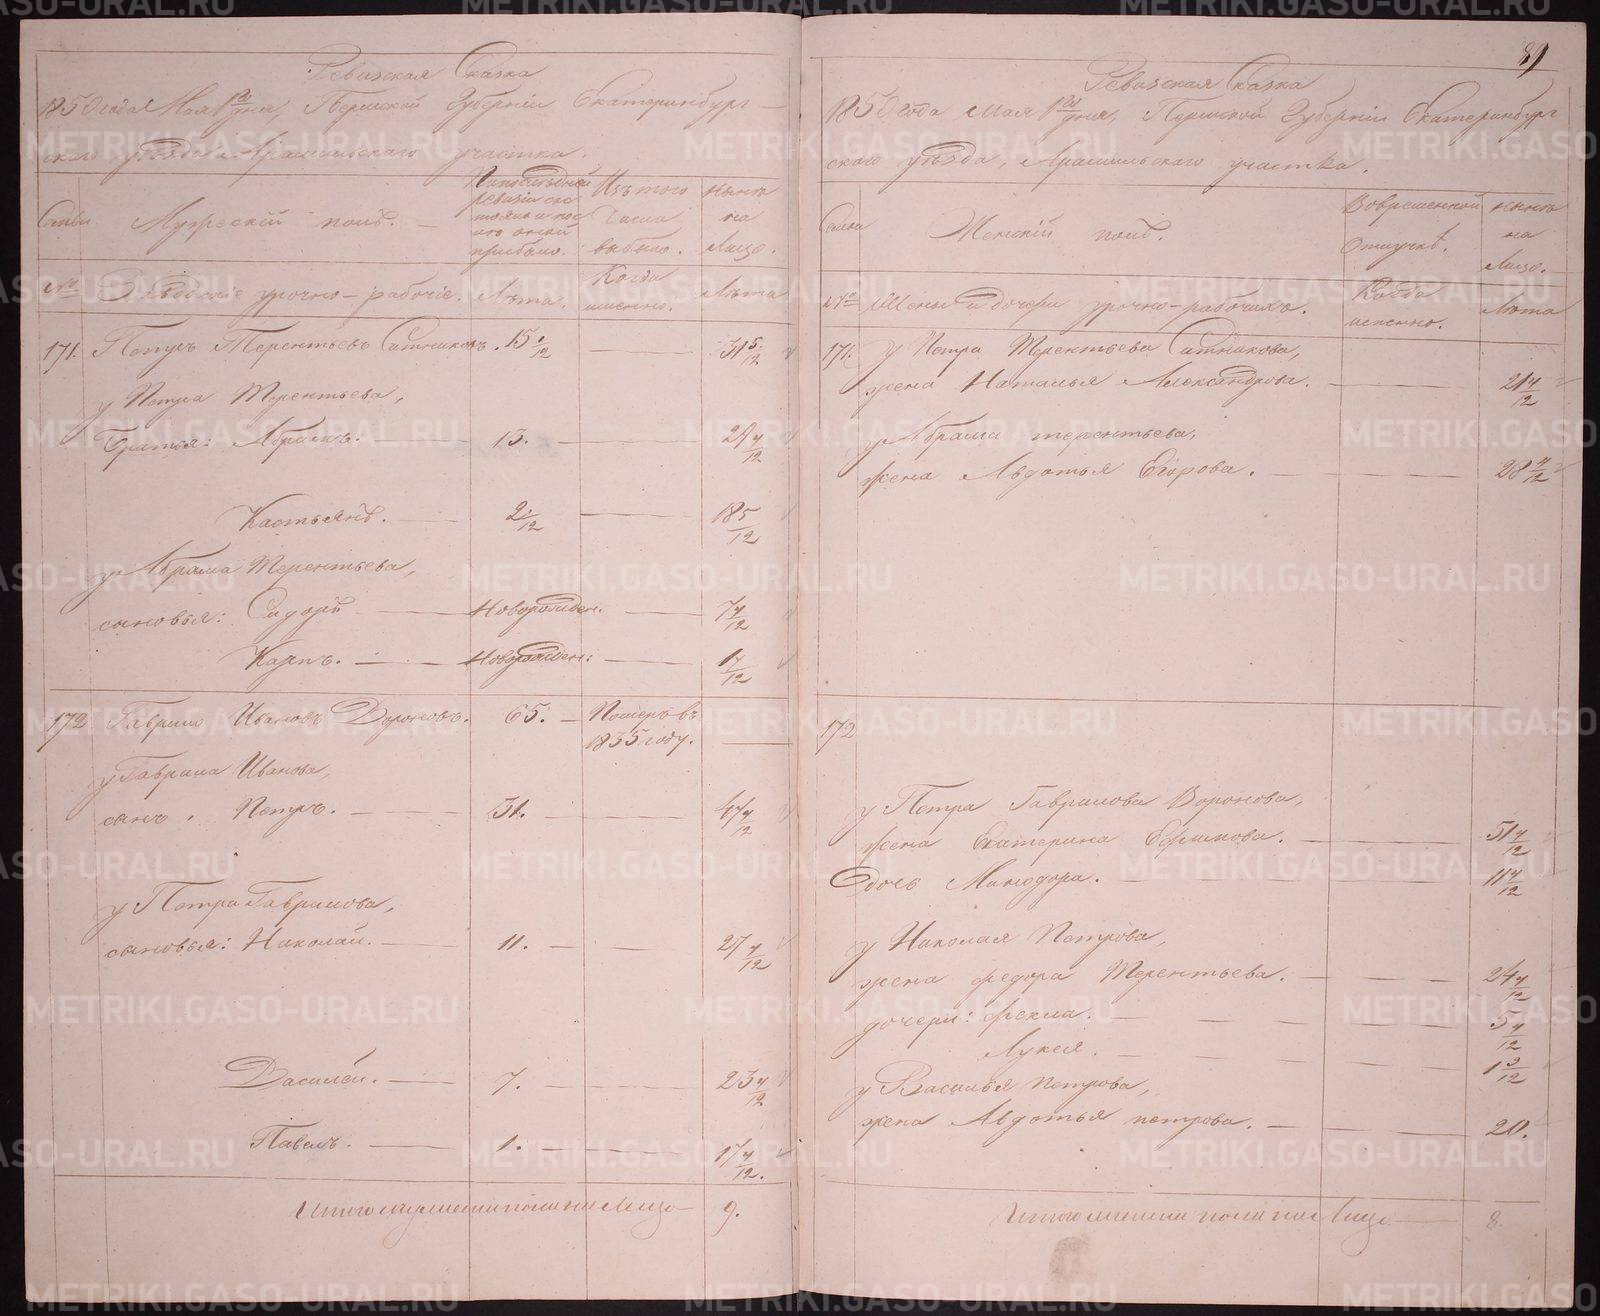 Ревизская Сказка
1850 года Мая 1го дня, Пермской Губернiи Екатеринбург-
скаго уѣзда Арамильскаго участка.
Семьи
Мужескiй полъ.
По последней ревизiи состояло и после оной прибыло.
Изъ того числа выбыло.
Нынѣ на лицо.
№
урочно-рабочiе.
Лѣта.
Когда именно.
Лѣта
171. Петръ Терентьевъ Ситниковъ. 15 1/12 — 31 5/12
у Петра Терентьева,
братья: Абрамъ. — 13. — 29 4/12
Кастьянъ. — 2 1/12 — 18 5/12
у Абрама Терентьева,
сыновья: Сидоръ — Новорожден. — 7 4/12
Карпъ. — Новорожден: — 1 4/12
172 Гаврило Ивановъ Вороновъ. 65. — Померъ въ
1835 году. —
у Гаврила Иванова,
сынъ. Петръ. — 31. — 47 4/12
у Петра Гаврилова,
сыновья: Николай. — 11. — 27 4/12
Василей. — 7. — 23 4/12
Павелъ. — 1. — 17 4/12.
Итого мужеска пола на лицо — 9.
89
Ревизская Сказка
1850 года мая 1го дня, Пермской Губернiи Екатеринбург
скаго уѣзда, Арамильскаго участка.
Семьи
Женскiй полъ.
Во временной отлучкѣ.
Нынѣ на лицо.
№ Жены и дочери урочно-рабочихъ.
Когда именно.
Лѣта
171. у Петра Терентьева Ситникова,
жена Наталья Александрова. — 21 4/12
у Абрама терентьева,
жена Авдотья Егорова. — 28 4/12
172
у Петра Гаврилова Воронова,
жена Екатерина Ефимова. — 51 4/12
Дочь Минодора. — 11 4/12
у Николая Петрова,
жена федора Терентьева. — 24 4/12
дочери: фекла. — 5 4/12
Лукея. — 1 3/12
у Василья петрова,
жена Авдотья петрова. — 20.
Итого женска пола на лицо — 8.
METRIKI.GASO-URAL.RU